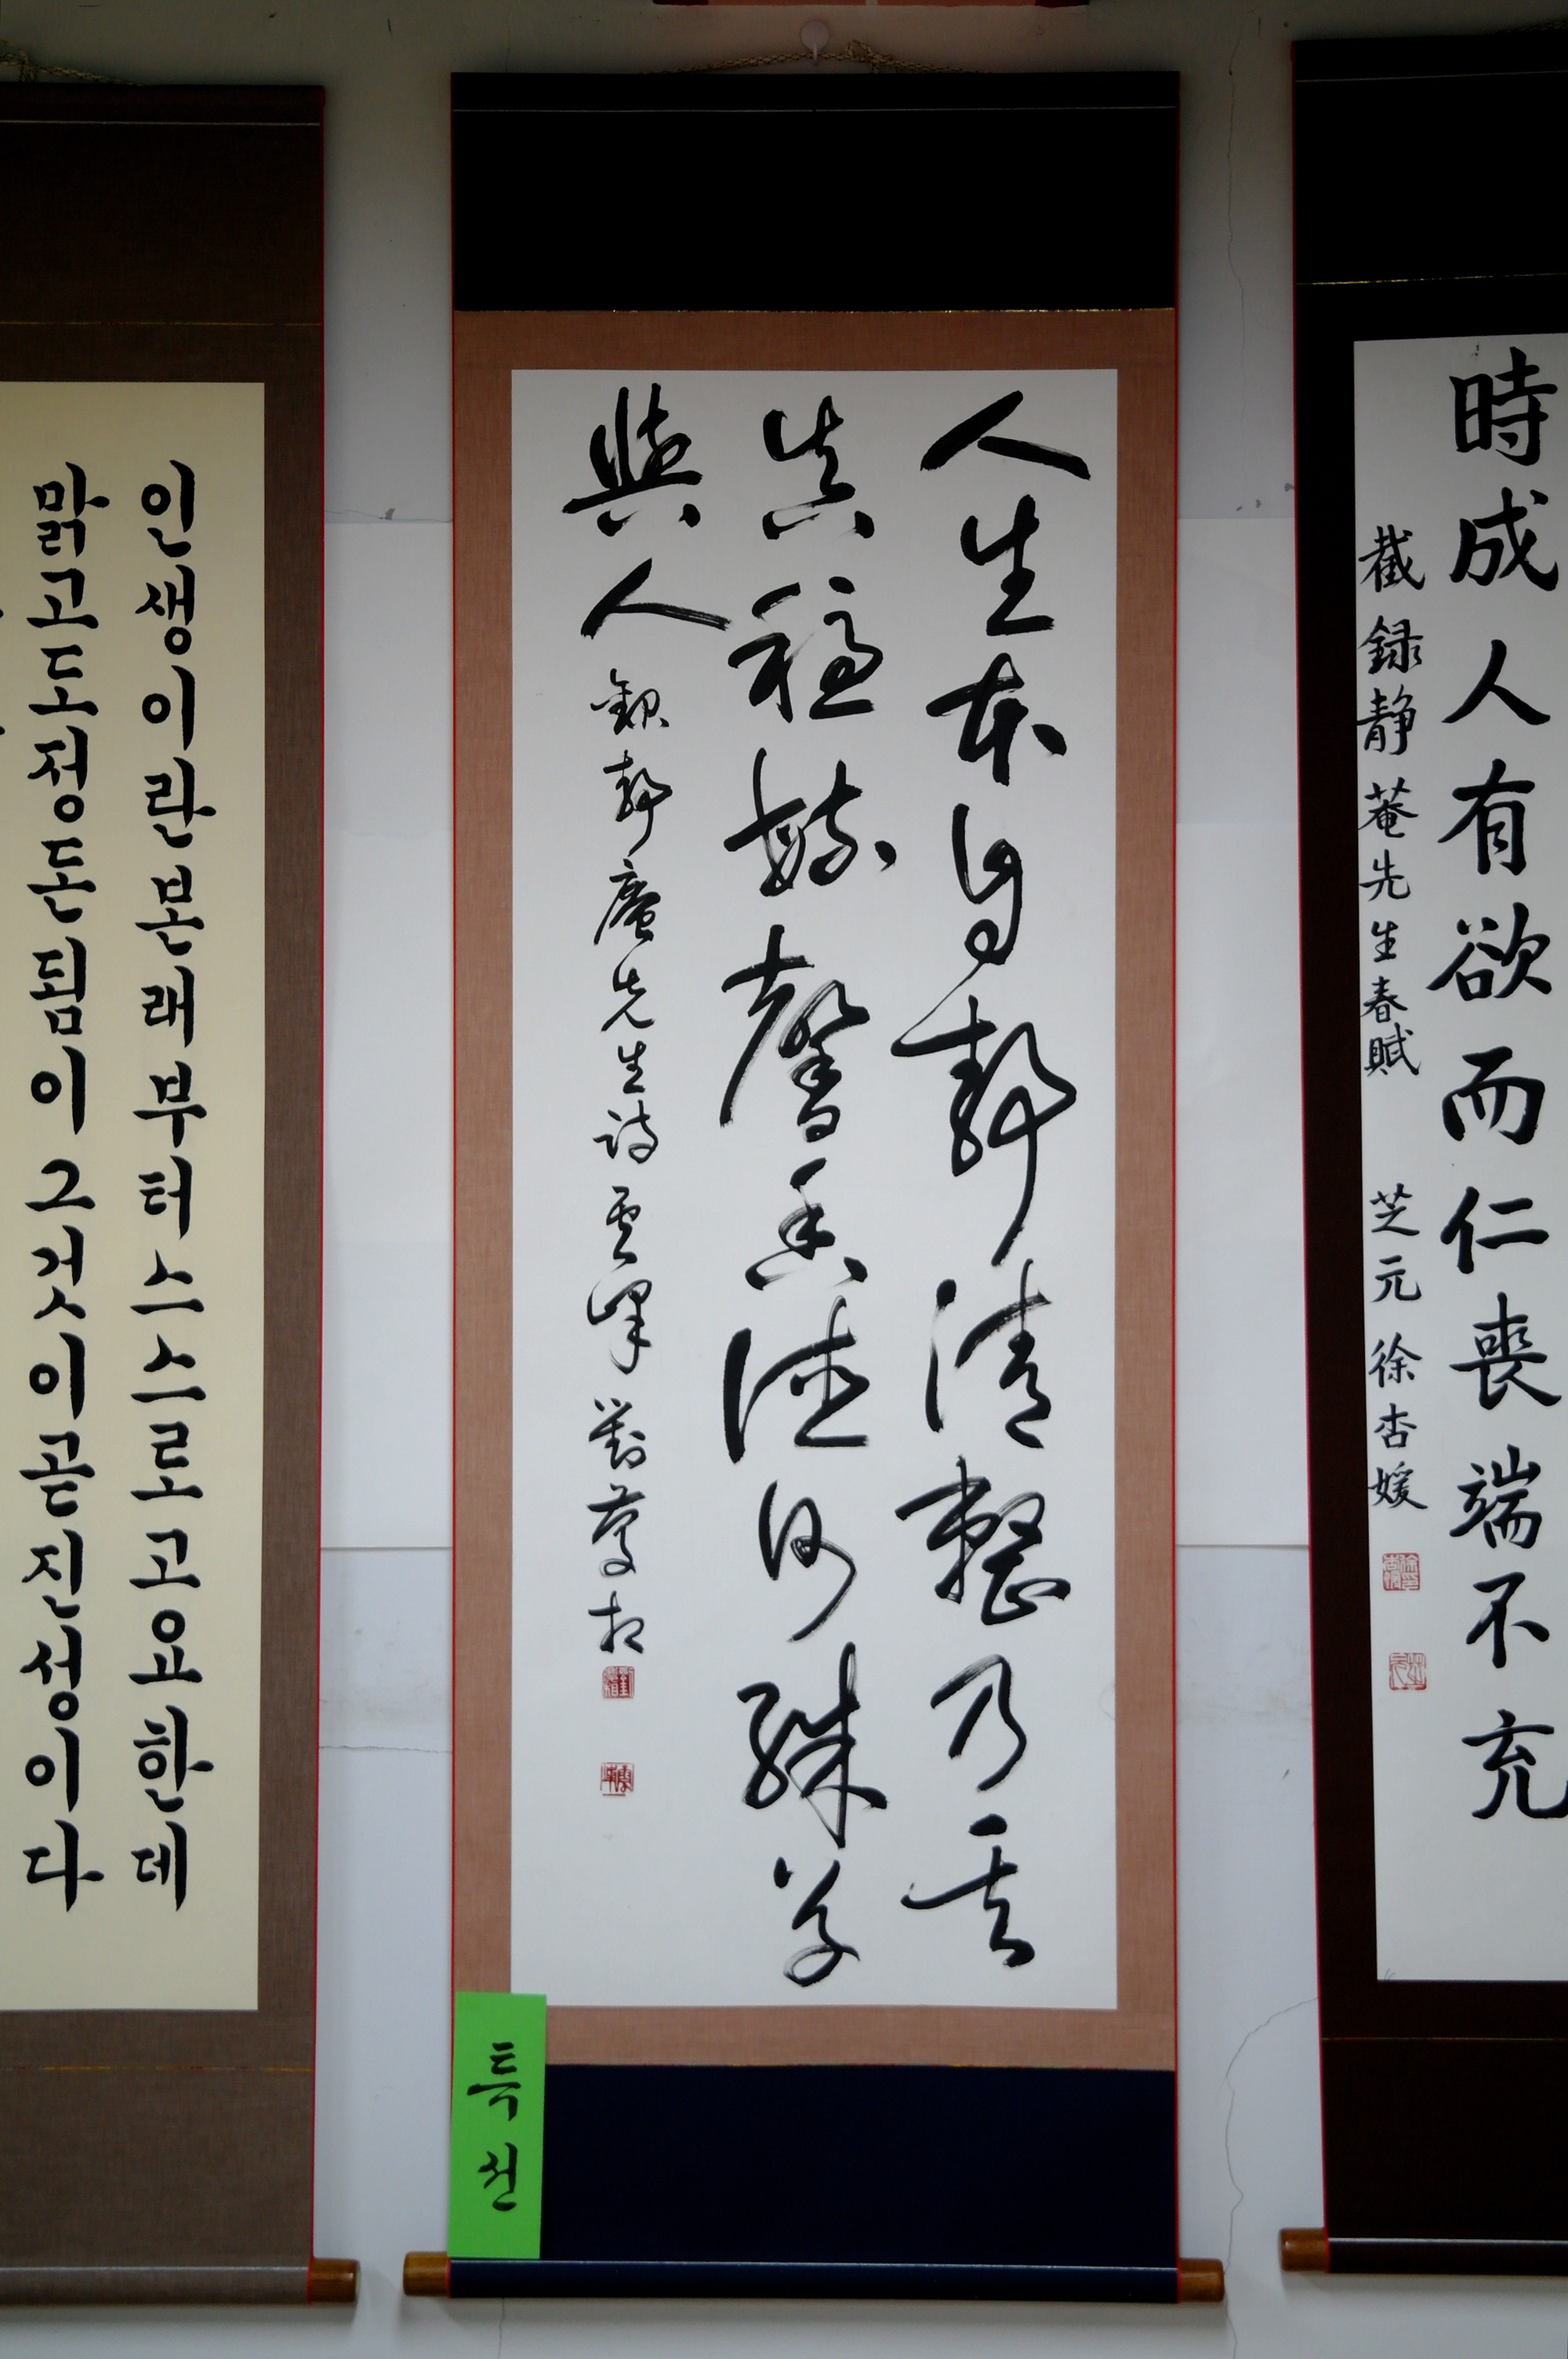 時成人有欲而仁喪端不充
截録静菴先生春賦 芝元 徐杏媛
人生本自靜清整乃其
眞穩毓馨香德何殊草
與人 錄靜庵先生詩 雲峰
특선
인생이란본래부터스스로고요한데
맑고도정돈됨이그것이곧진성이다